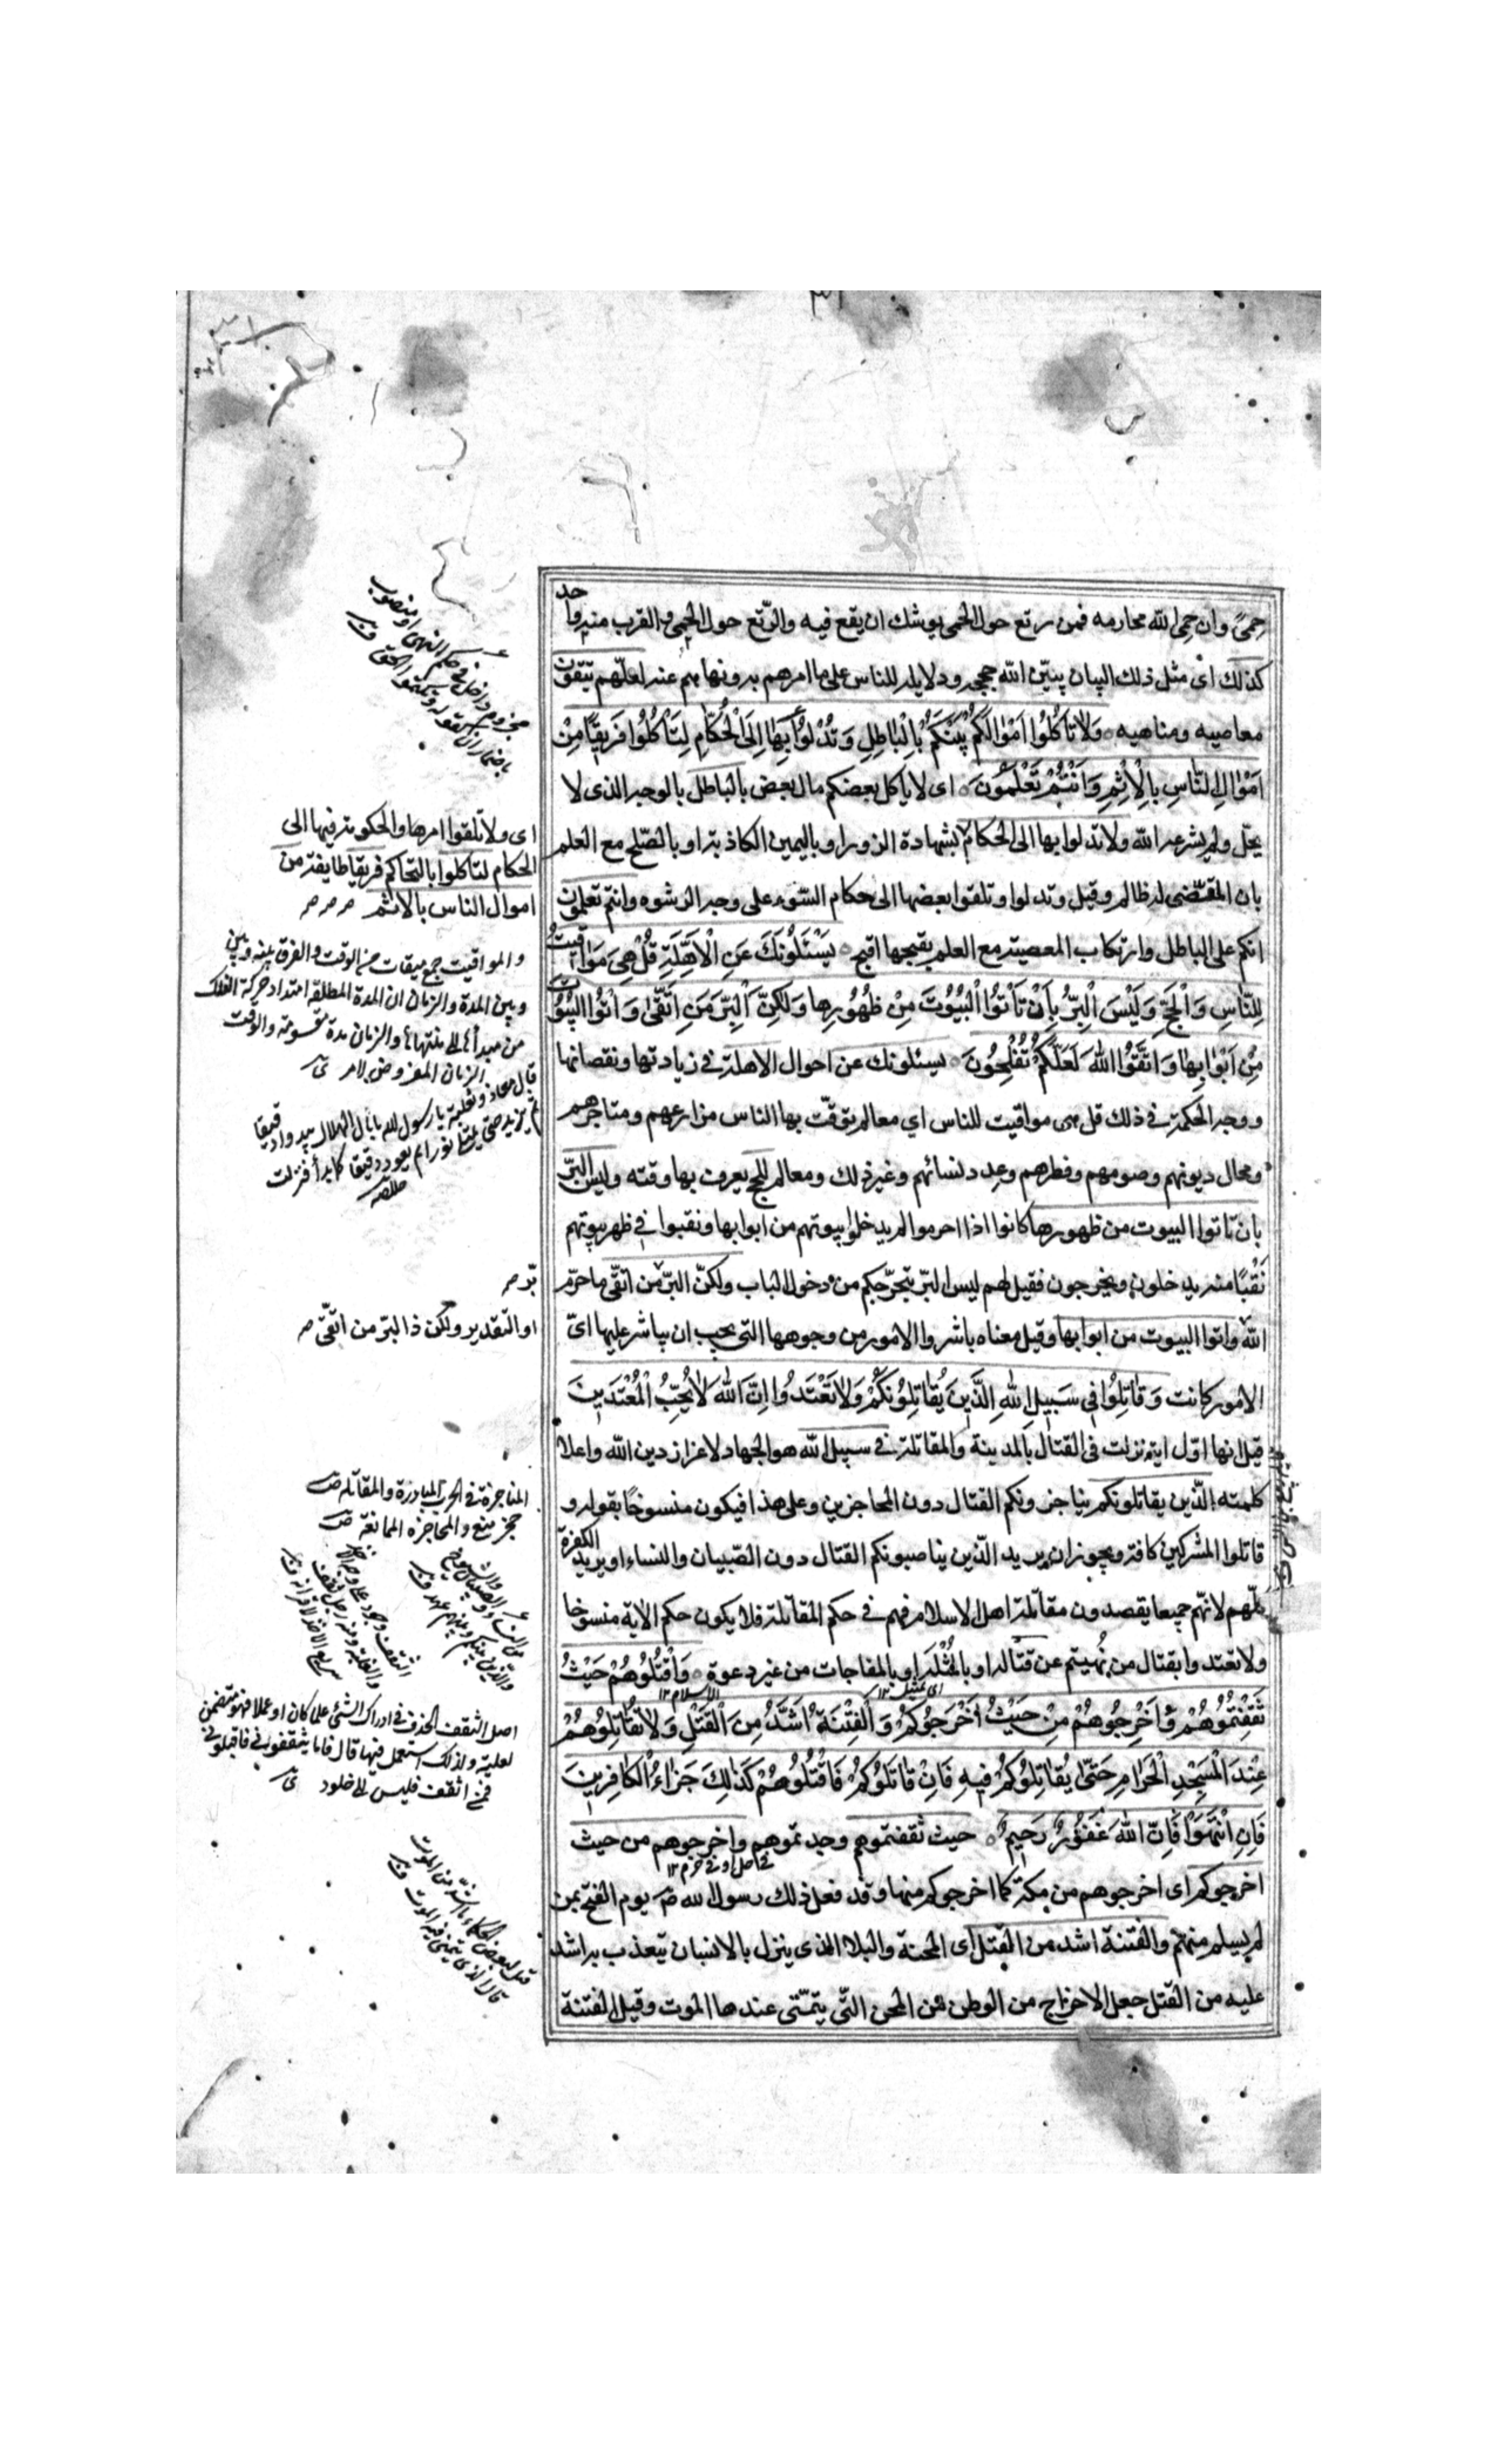 حِمىً وان حِمى الله محارمه فمن رتع حول الحمى يوشك ان يقع فيه والرّتع حول الحِمى والقرب منه واحد
كذلك اى مثل ذلك البيان يبيّن الله حججه ودلايله للناس على ما امرهم به ونهاهم عنه لعلّهم يتّقون
معاصيه ومناهيه ٥ وَلَا تَأْكُلُوا اَمْوٰالَكُمْ بَيْنَكُمْ بِالْبٰاطِلِ وَتُدْلُوا بِهٰا اِلَى الْحُكّٰامِ لِتَأْكُلُوا فَرِيقًا مِنْ
اَمْوٰالِ النّٰاسِ بِالْاِثْمِ وَاَنْتُمْ تَعْلَمُونَ ٥ اى لا ياكل بعضكم مال بعض بالباطل بالوجه الذى لا
يحلّ ولم يشرعه الله ولا تدلوا بها الى الحكام بشهادة الزور او باليمين الكاذبة او بالصّلح مع العلم
بان المقضى له ظالم وقيل وتدلوا وتلقوا بعضها الى حكام السّوء على وجه الرشوه وانتم تعلمون
انكم على الباطل وارتكاب المعصية مع العلم بقبحها اقبح ٥ يَسْئَلُونَكَ عَنِ الْاَهِلَّةِ قُلْ هِيَ مَوٰاقِيتُ
لِلنّٰاسِ وَالْحَجِّ وَلَيْسَ الْبِرُّ بِاَنْ تَأْتُوا الْبُيُوتَ مِنْ ظُهُورِهٰا وَلٰكِنَّ الْبِرَّ مَنِ اتَّقىٰ وَاْتُوا الْبُيُوتَ
مِنْ اَبْوٰابِهٰا وَاتَّقُوا اللّٰهَ لَعَلَّكُمْ تُفْلِحُونَ ٥ يسئلونك عن احوال الاهلة فى زيادتها ونقصانها
ووجه الحكمة فى ذلك قل هى مواقيت للناس اي معالم يوقّت بها الناس مزارعهم ومتاجرهم
ومحال ديونهم وصومهم وفطرهم وعدد نسائهم وغير ذلك ومعالم للحج يعرف بها وقته وليس البرّ
بان تاتوا البيوت من ظهورها كانوا اذا احرموا لم يدخلوا بيوتهم من ابوابها ونقبوا فى ظهر بيوتهم
نَقْبًا منه يدخلون ويخرجون فقيل لهم ليس البرّ بتحرّجكم من دخول الباب ولكنّ البرّ من اتّقى ما حرّم
الله واتوا البيوت من ابوابها وقيل معناه باشروا الامور من وجوهها التى يجب ان يباشر عليها اىّ
الامور كانت وَقٰاتِلُوا فِي سَبِيلِ اللّٰهِ الَّذِينَ يُقٰاتِلُونَكُمْ وَلٰا تَعْتَدُوا اِنَّ اللّٰهَ لٰا يُحِبُّ الْمُعْتَدِينَ
قيل انها اوّل اية نزلت فى القتال بالمدينة والمقاتلة فى سبيل الله هو الجهاد لاعزاز دين الله واعلا
كلمته الّذين يقاتلونكم يناجزونكم القتال دون المحاجزين وعلى هذا فيكون منسوخًا بقوله و
قاتلوا المشركين كافة ويجوز ان يريد الّذين يناصبونكم القتال دون الصّبيان والنساء او يريد الكفرة
كلّهم لانّهم جميعا يقصدون مقاتلة اهل الاسلام فهم فى حكم المقاتلة فلا يكون حكم الاية منسوخا
ولا تعتدوا بقتال من نُهيتم عن قتاله او بالمُثْلَة او بالمفاجات من غير دعوة ٥ وَاقْتُلُوهُمْ حَيْثُ
ثَقِفْتُمُوهُمْ وَاَخْرِجُوهُمْ مِنْ حَيْثُ اَخْرَجُوكُمْ وَالْفِتْنَةُ اَشَدُّ مِنَ الْقَتْلِ وَلٰا تُقٰاتِلُوهُمْ
عِنْدَ الْمَسْجِدِ الْحَرٰامِ حَتّىٰ يُقٰاتِلُوكُمْ فِيهِ فَاِنْ قٰاتَلُوكُمْ فَاقْتُلُوهُمْ كَذٰلِكَ جَزٰاءُ الْكٰافِرِينَ
فَاِنِ انْتَهَوْا فَاِنَّ اللّٰهَ غَفُورٌ رَحِيمٌ ٥ حيث ثقفتموهم وجدتموهم واخرجوهم من حيث
فى حل او فى حرم ١٢
اخرجوكم اى اخرجوهم من مكة كما اخرجوكم منها وقد فعل ذلك رسول الله ص يوم الفتح بمن
لم يسلم منهم والفتنة اشد من القتل اى المحنة والبلا الذى ينزل بالانسان يتعذب به اشد
عليه من القتل جعل الاخراج من الوطن من المحن التّى يتمنّى عندها الموت وقيل الفتنة
مجزوم داخل فى حكم النهى او منصوب
باضمار ان كقوله وتكتموا الحق
اى ولا تلقوا امرها والحكومة فيها الى
الحكام لتاكلوا بالتحاكم فريقا طايفة من
اموال الناس بالاثم
والمواقيت جمع ميقات من الوقت والفرق بينه وبين
وبين المدة والزمان ان المدة المطلقة امتداد حركة الفلك
من مبدأها الى منتهاها والزمان مدة مقسومة والوقت
الزمان المفروض لامر
قال معاذ وثعلبة يا رسول الله ما بال الهلال يبدو ادقيقا
ثم يزيد حتى يمتلئ نورا ثم يعود دقيقا كما بدأ فنزلت
برّ
او التقدير ولكن ذا البرّ من اتقىّ
المناجزة فى الحرب المبادرة والمقاتله
حجز منع والمحاجزه الممانعة
اصل الثقف الحذق فى ادراك الشئ علما كان او عملا فهو متضمن
لغلبة ولذلك استعمل فيها قال فاما تثقفونى فاقتلونى
فمن اثقف فليس الى خلود
قيل لبعض الحكماء ما اشدّ من الموت
قال الذى يتمنى فيه الموت